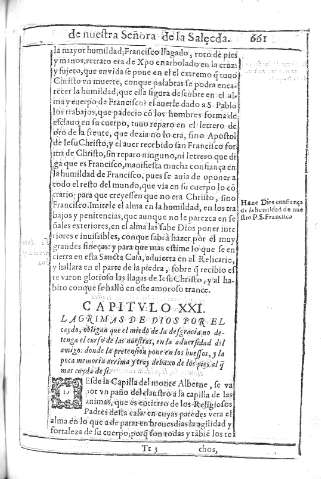 de nuestra Señora de la Salceda. 661
la mayor humildad, Francisco llagado, roto de pies
y manos, retrato era de Xpo enarbolado en la cruz,
y sujeto, que en vida se pone en el el extremo q̃ tuuo
Christo en muerte, conque palabras se podra enca-
recer la humildad, que esta figura descubre en el al-
ma y cuerpo de Francisco? el auerle dado a S. Pablo
los trabajos, que padecio cõ los hombres forma de
esclauo, en su cuerpo, tuuo reparo en el letrero de
oro de la frente, que dezia no lo era, sino Apostol
de Iesu Christo, y el auer recebido san Francisco for
ma de Christo, sin reparo ninguno, ni letrero que di
ga que es Francisco, manifiesta mucha confiança en
la humildad de Francisco, pues se auia de oponer a
todo el resto del mundo, que via en su cuerpo lo cõ
trario: para que creyessen que no era Christo, sino
Francisco. Imitele el alma en la humildad, en los tra
bajos y penitencias, que aunque no le parezca en se-
ñales exteriores, en el alma las sabe Dios poner inte
riores e inuisibles, conque sabrà hazer por el muy
grandes finezas: y para que mas estime lo que se en-
cierra en esta Sancta Casa, aduierta en el Relicario,
y hallara en el parte de la piedra, sobre q̃ recibio es
te varon glorioso las llagas de Iesu Christo, y al ha-
bito conque se hallò en este amoroso trance.
Haze Dios confiança
de la humildad de nue
stro P. S. Francisco
CAPITVLO XXI.
LAGRIMAS DE DIOS POR EL
caydo, obligan que el miedo de la desgracia no de-
tenga el curso de las nuestras, en la aduersidad del
amigo: donde la pretension pone en los huessos, y la
poca memoria arrima y trae debaxo de los pies al q̃
mas cuyda de si.
Desde la Capilla del monte Alberne, se va
por vn paño del claustro a la capilla de las
animas, que es entierro de los Religiosos
Padres desta casa: en cuyas paredes vera el
alma en lo que a de parar en breues dias la agilidad y
fortaleza de su cuerpo, porq̃ son rodas y tãbiẽ los te
Tt 3 chos,